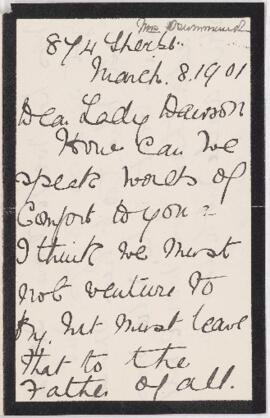 Mrs Drummond
874 Sherb.
March. 8. 1901
Dear Lady Dawson
How can we
speak words of
Comfort to you =
I think we must
not venture to
try, but must leave
that to the
Father of all.